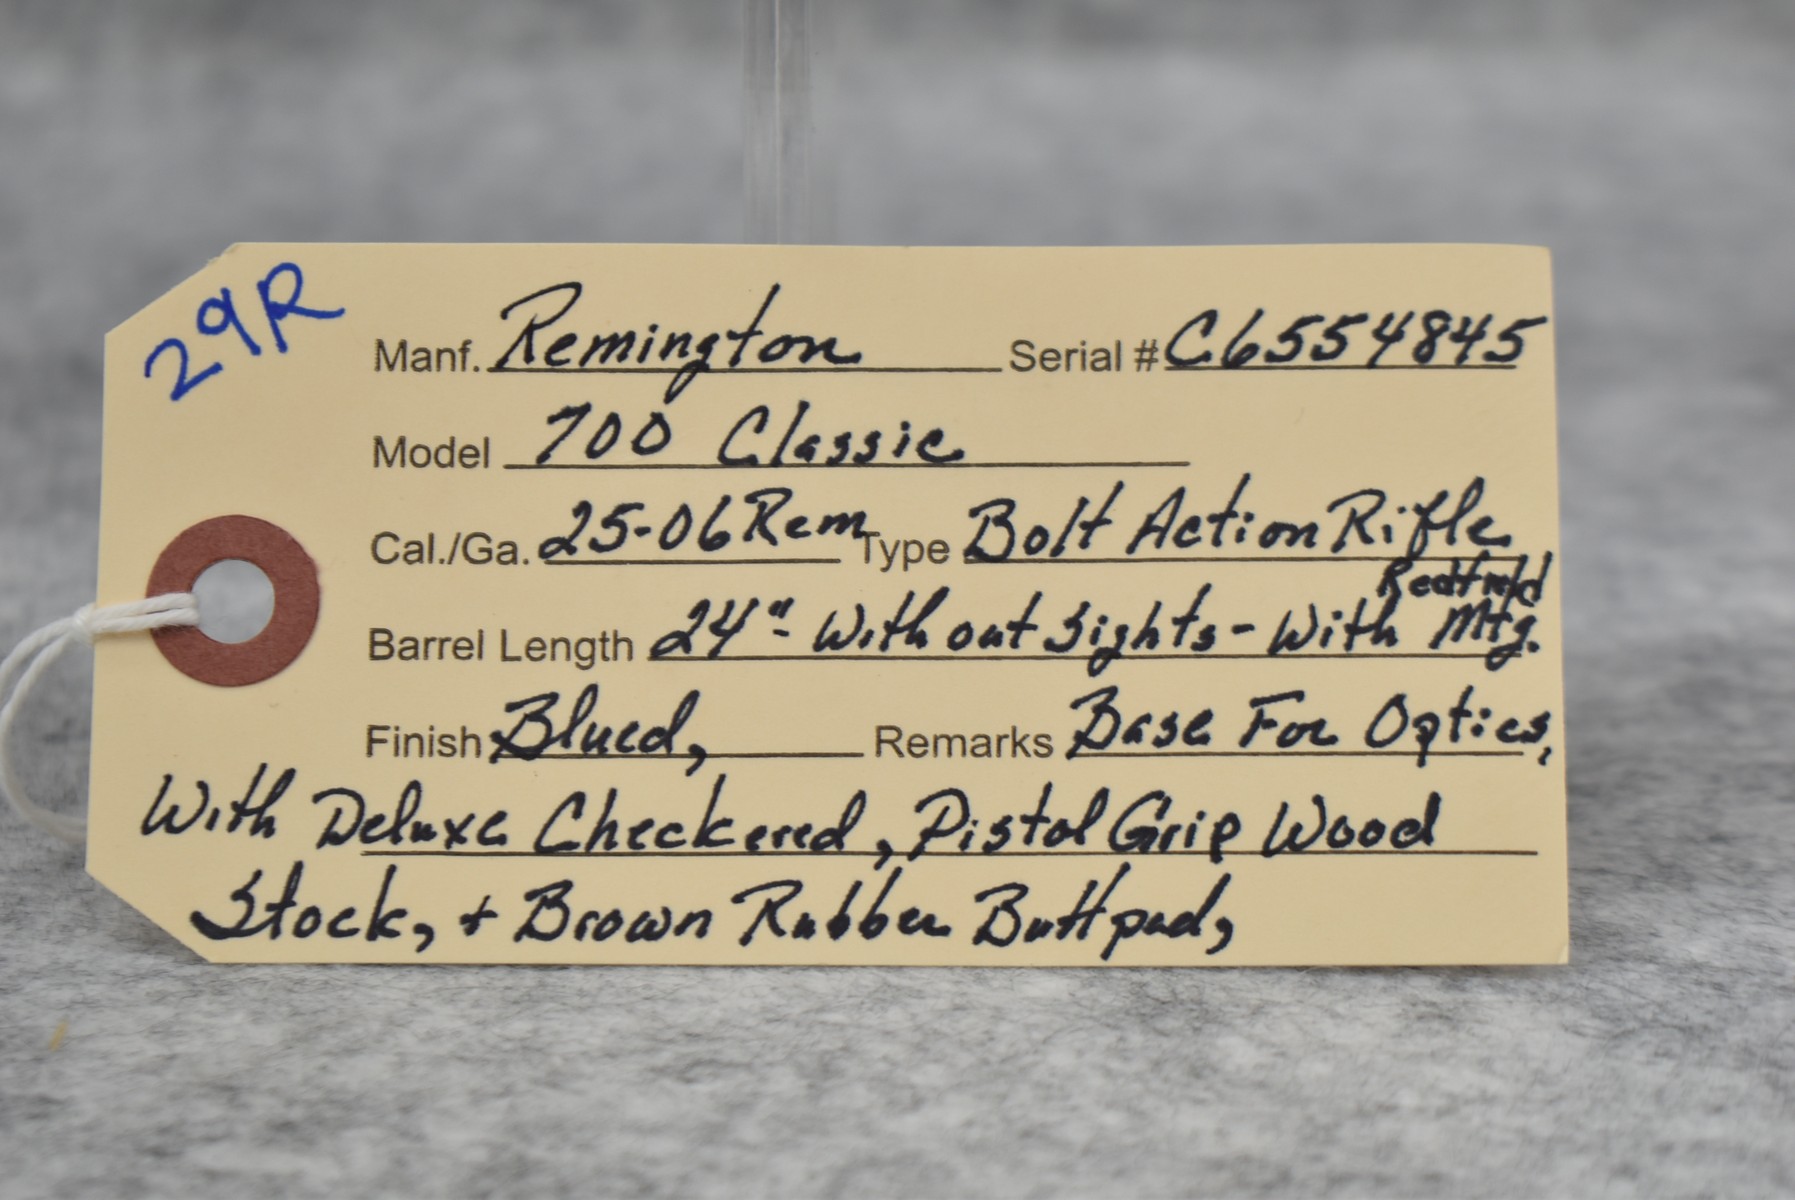 29R
Manf. Remington Serial # C6554845
Model 700 Classic
Cal./Ga. 25-06 Rem Type Bolt Action Rifle
Redfield
Barrel Length 24"- Without Sights - With Mtg.
Finish Blued, Remarks Base For Optics,
With Deluxe Checkered, Pistol Grip Wood
Stock, + Brown Rubber Buttpad,